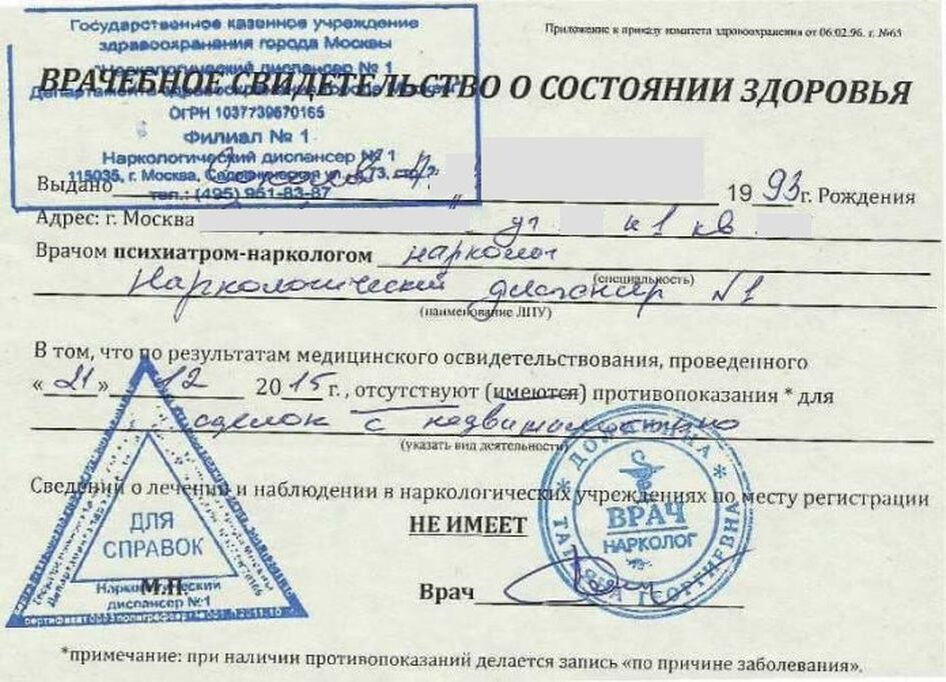 Государственное казенное учреждение
здравоохранения города Москвы
"Наркологический диспансер № 1
Департамента здравоохранения города Москвы"
ОГРН 1037739670165
Филиал № 1
Наркологический диспансер № 1
115035, г. Москва, Садовническая ул., д. 73, стр. 2
тел.: (495) 951-83-87
Приложение к приказу комитета здравоохранения от 06.02.96. г. №63
ВРАЧЕБНОЕ СВИДЕТЕЛЬСТВО О СОСТОЯНИИ ЗДОРОВЬЯ
Выдано 1993г. Рождения
Адрес: г. Москва к1 кв
Врачом психиатром-наркологом нарколог
(специальность)
Наркологический диспансер N1
(наименование ЛПУ)
В том, что по результатам медицинского освидетельствования, проведенного
«21» 12 2015 г., отсутствуют (имеются) противопоказания * для
сделок с недвижимостью
(указать вид деятельности)
Сведений о лечении и наблюдении в наркологических учреждениях по месту регистрации
НЕ ИМЕЕТ
ДЛЯ
СПРАВОК
Наркологический
диспансер №1
М.П.
Врач
ВРАЧ
НАРКОЛОГ
ТАТЬЯНА ГЕОРГИЕВНА
*примечание: при наличии противопоказаний делается запись «по причине заболевания».